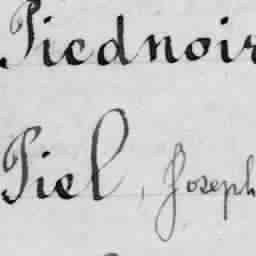 Piednoir
Piel, Joseph